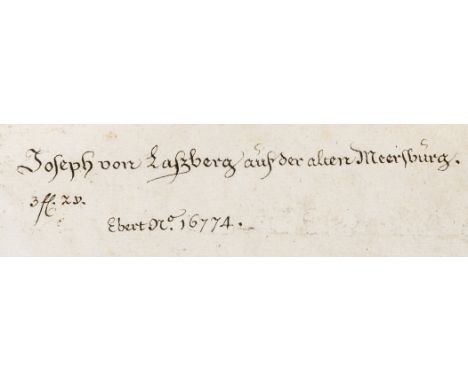 Joseph von Laßberg auf der alten Meersburg.
3 ff. xv.
Ebert No. 16774.